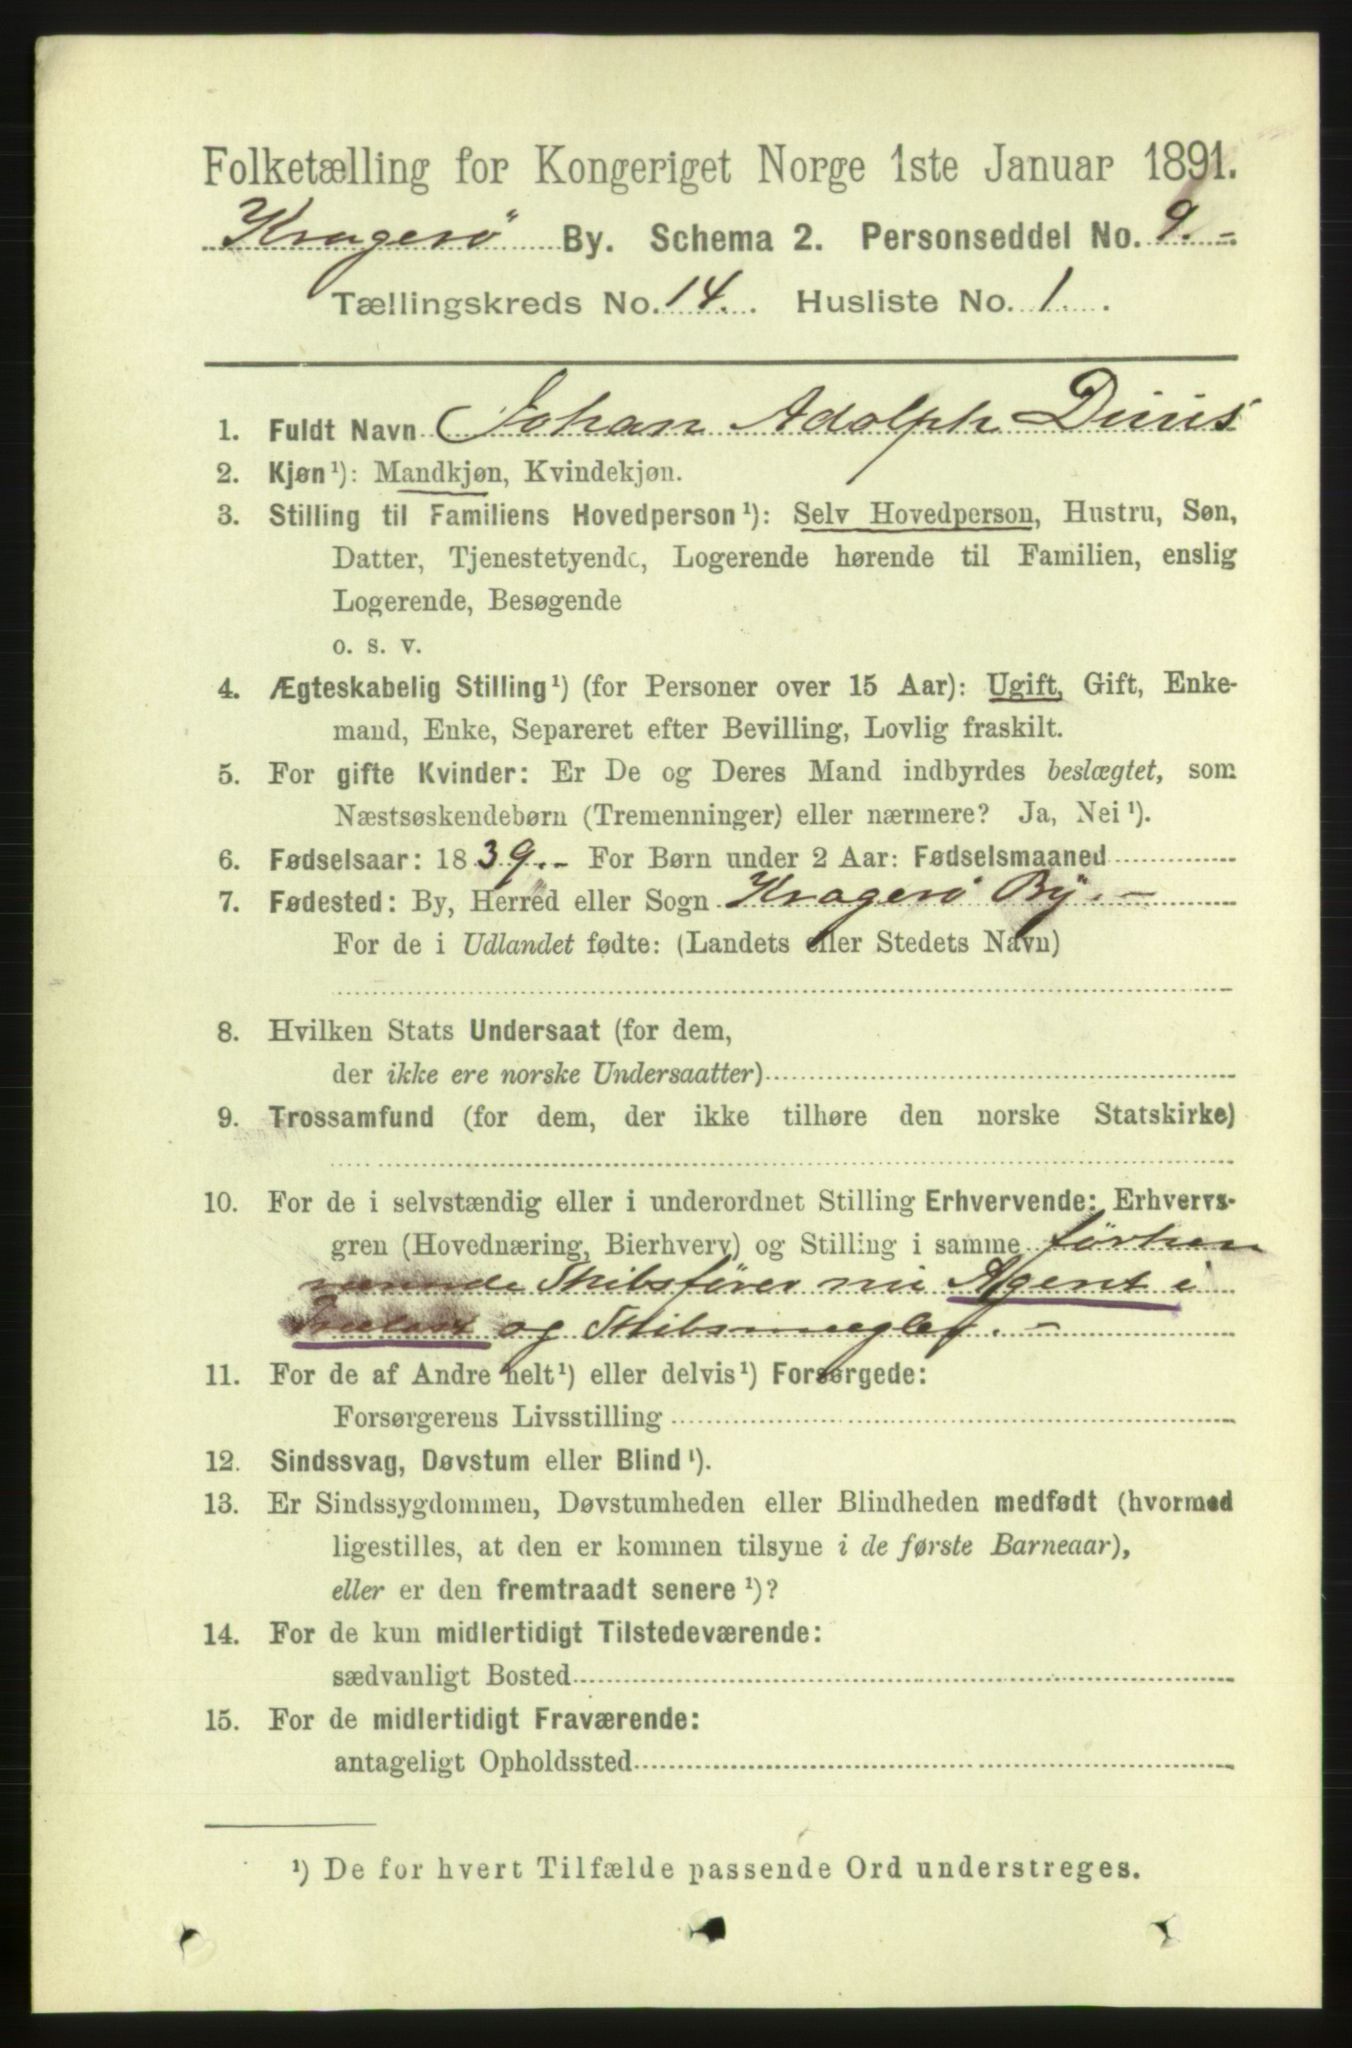 Folketælling for Kongeriget Norge 1ste Januar 1891.
Kragerø By. Schema 2. Personseddel No. 9.-
Tællingskreds No. 14. Husliste No. 1.
1. Fuldt Navn Johan Adolph Diriis
2. Kjøn¹): Mandkjøn, Kvindekjøn.
3. Stilling til Familiens Hovedperson¹): Selv Hovedperson, Hustru, Søn,
Datter, Tjenestetyende, Logerende hørende til Familien, enslig
Logerende, Besøgende
o. s. v.
4. Ægteskabelig Stilling¹) (for Personer over 15 Aar): Ugift, Gift, Enke-
mand, Enke, Separeret efter Bevilling, Lovlig fraskilt.
5. For gifte Kvinder: Er De og Deres Mand indbyrdes beslægtet, som
Næstsøskendebørn (Tremenninger) eller nærmere? Ja, Nei¹).
6. Fødselsaar: 1839.- For Børn under 2 Aar: Fødselsmaaned
7. Fødested: By, Herred eller Sogn Kragerø By.-
For de i Udlandet fødte: (Landets eller Stedets Navn)
8. Hvilken Stats Undersaat (for dem,
der ikke ere norske Undersaatter)
9. Trossamfund (for dem, der ikke tilhøre den norske Statskirke)
10. For de i selvstændig eller i underordnet Stilling Erhvervende: Erhvervs-
gren (Hovednæring, Bierhverv) og Stilling i samme førhen
værende Skibsfører nu Agent i
og Skibsmægler.-
11. For de af Andre helt¹) eller delvis¹) Forsørgede:
Forsørgerens Livsstilling
12. Sindssvag, Døvstum eller Blind¹).
13. Er Sindssygdommen, Døvstumheden eller Blindheden medfødt (hvormed
ligestilles, at den er kommen tilsyne i de første Barneaar),
eller er den fremtraadt senere¹)?
14. For de kun midlertidigt Tilstedeværende:
sædvanligt Bosted
15. For de midlertidigt Fraværende:
antageligt Opholdssted
¹) De for hvert Tilfælde passende Ord understreges.